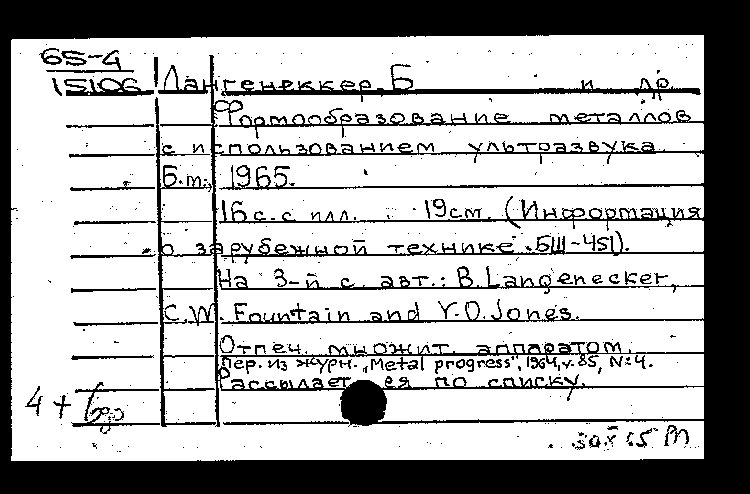 65-4
15106 Лангенеккер, Б и др.
Формообразование металлов
с использованием ультразвука.
Б.м., 1965.
16 с. с илл. 19 см. (Информация
о зарубежной технике. БШ-451).
На 3-й с. авт.: B. Langenecker,
C.W. Fountain and V.O. Jones.
Отпеч. множит. аппаратом.
Пер. из журн. "Metal progress", 1964, v. 85, N:4.
Рассылается по списку.
4 +